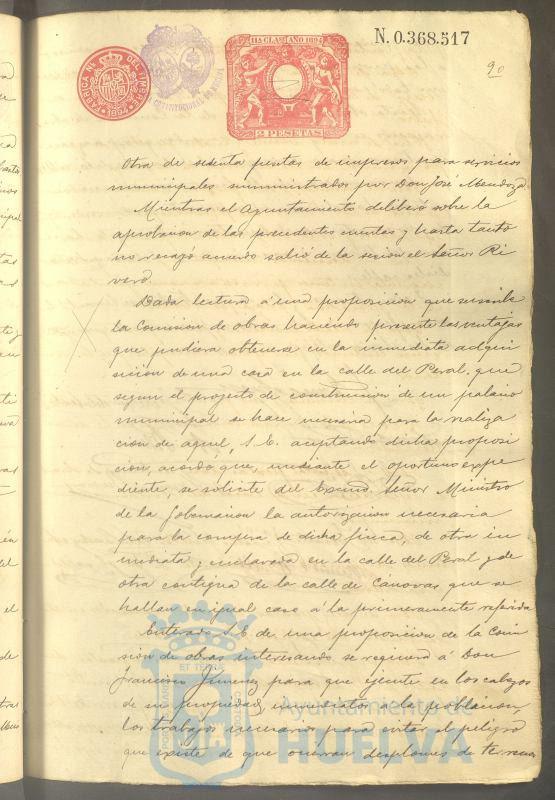 N. 0.368.517
11A CLASE AÑO 1894
FABRICA NAL DEL TIMBRE
1894
CONSTITUCIONAL DE HUELVA
2 PESETAS
90
Otra de sesenta pesetas de impresos para servicios
municipales suministrados por Don José Mendoza.
Mientras el Ayuntamiento deliberó sobre la
aprobacion de las precedentes cuentas y hasta tanto
no recayó acuerdo salió de la sesion el Señor Ri
vero.
Dada lectura á una proposicion que suscribe
la Comision de obras haciendo presente las ventajas
que pudiera obtenerse en la inmediata adqui
sicion de una casa en la calle del Peral, que
segun el proyecto de construccion de un palacio
municipal se hace necesaria para la realiza
cion de aquel, S. E. aceptando dicha proposi
cion, acordó que, mediante el oportuno expe
diente, se solicite del Excmo. Señor Ministro
de la Gobernacion la autorizacion necesaria
para la compra de dicha finca, de otra in
mediata y enclavada en la calle del Peral y de
otra contigua de la calle de Canovas que se
hallan en igual caso á la primeramente referida
Enterado S. E. de una proposicion de la Comi
sion de obras interesando se requiera á Don
Francisco Jimenez para que ejecute en los cabezos
de su propiedad, inmediatos á la poblacion,
los trabajos necesarios para evitar el peligro
que existe de que ocurran desplomes de terrenos
ET TERRA
Ayuntamiento de
HUELVA